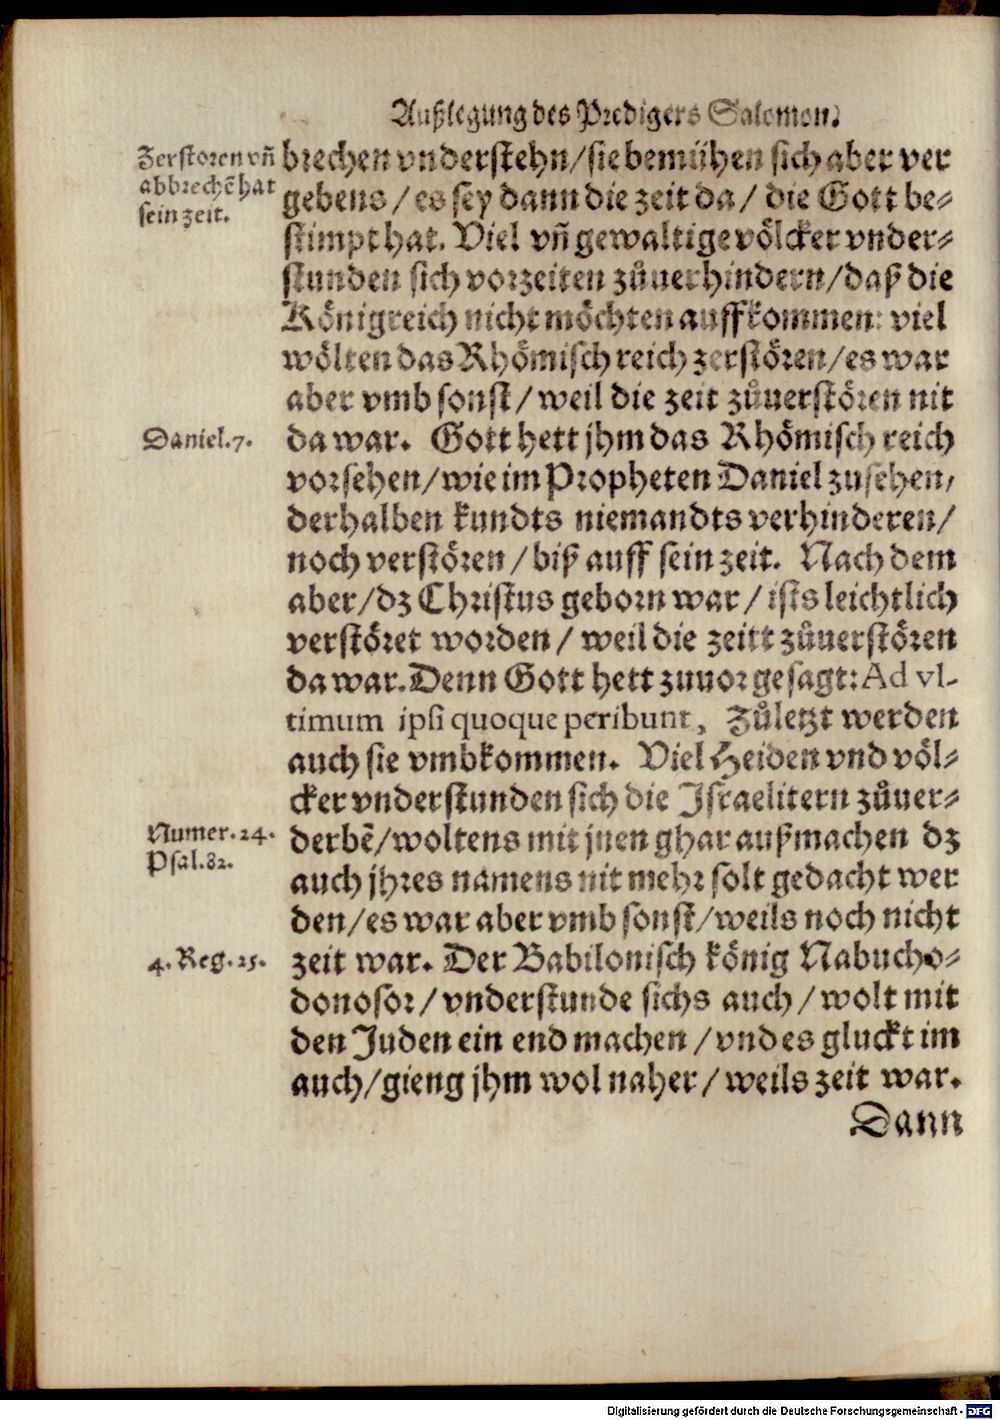 Außlegung des Predigers Salomon.
Zerstoren vñ
abbrechẽ hat
sein zeit.
brechen vnderstehn/sie bemühen sich aber ver
gebens/es sey dann die zeit da/ die Gott be⸗
stimpt hat. Viel vñ gewaltige völcker vnder⸗
stunden sich vorzeiten zůuerhindern/daß die
Königreich nicht möchten auffkommen: viel
wölten das Rhömisch reich zerstören/es war
aber vmb sonst/weil die zeit zůuerstören nit
Daniel.7.
da war. Gott hett jhm das Rhömisch reich
vorsehen/wie im Propheten Daniel zusehen,
derhalben kundts niemandts verhinderen/
noch verstören/biß auff sein zeit. Nach dem
aber/dz Christus geborn war/ists leichtlich
verstöret worden/ weil die zeitt zůuerstören
da war. Denn Gott hett zuuor gesagt: Ad vl-
timum ipsi quoque peribunt, Zůletzt werden
auch sie vmbkommen. Viel Heiden vnd völ⸗
cker vnderstunden sich die Israelitern zůuer⸗
Numer.24.
Psal.82.
derbẽ/woltens mit jnen ghar außmachen dz
auch jhres namens nit mehr solt gedacht wer
den/es war aber vmb sonst/weils noch nicht
4.Reg.25.
zeit war. Der Babilonisch könig Nabucho⸗
donosor/vnderstunde sichs auch/wolt mit
den Juden ein end machen/vnd es gluckt im
auch/gieng jhm wol naher/weils zeit war.
Dann
Digitalisierung gefördert durch die Deutsche Forschungsgemeinschaft - DFG